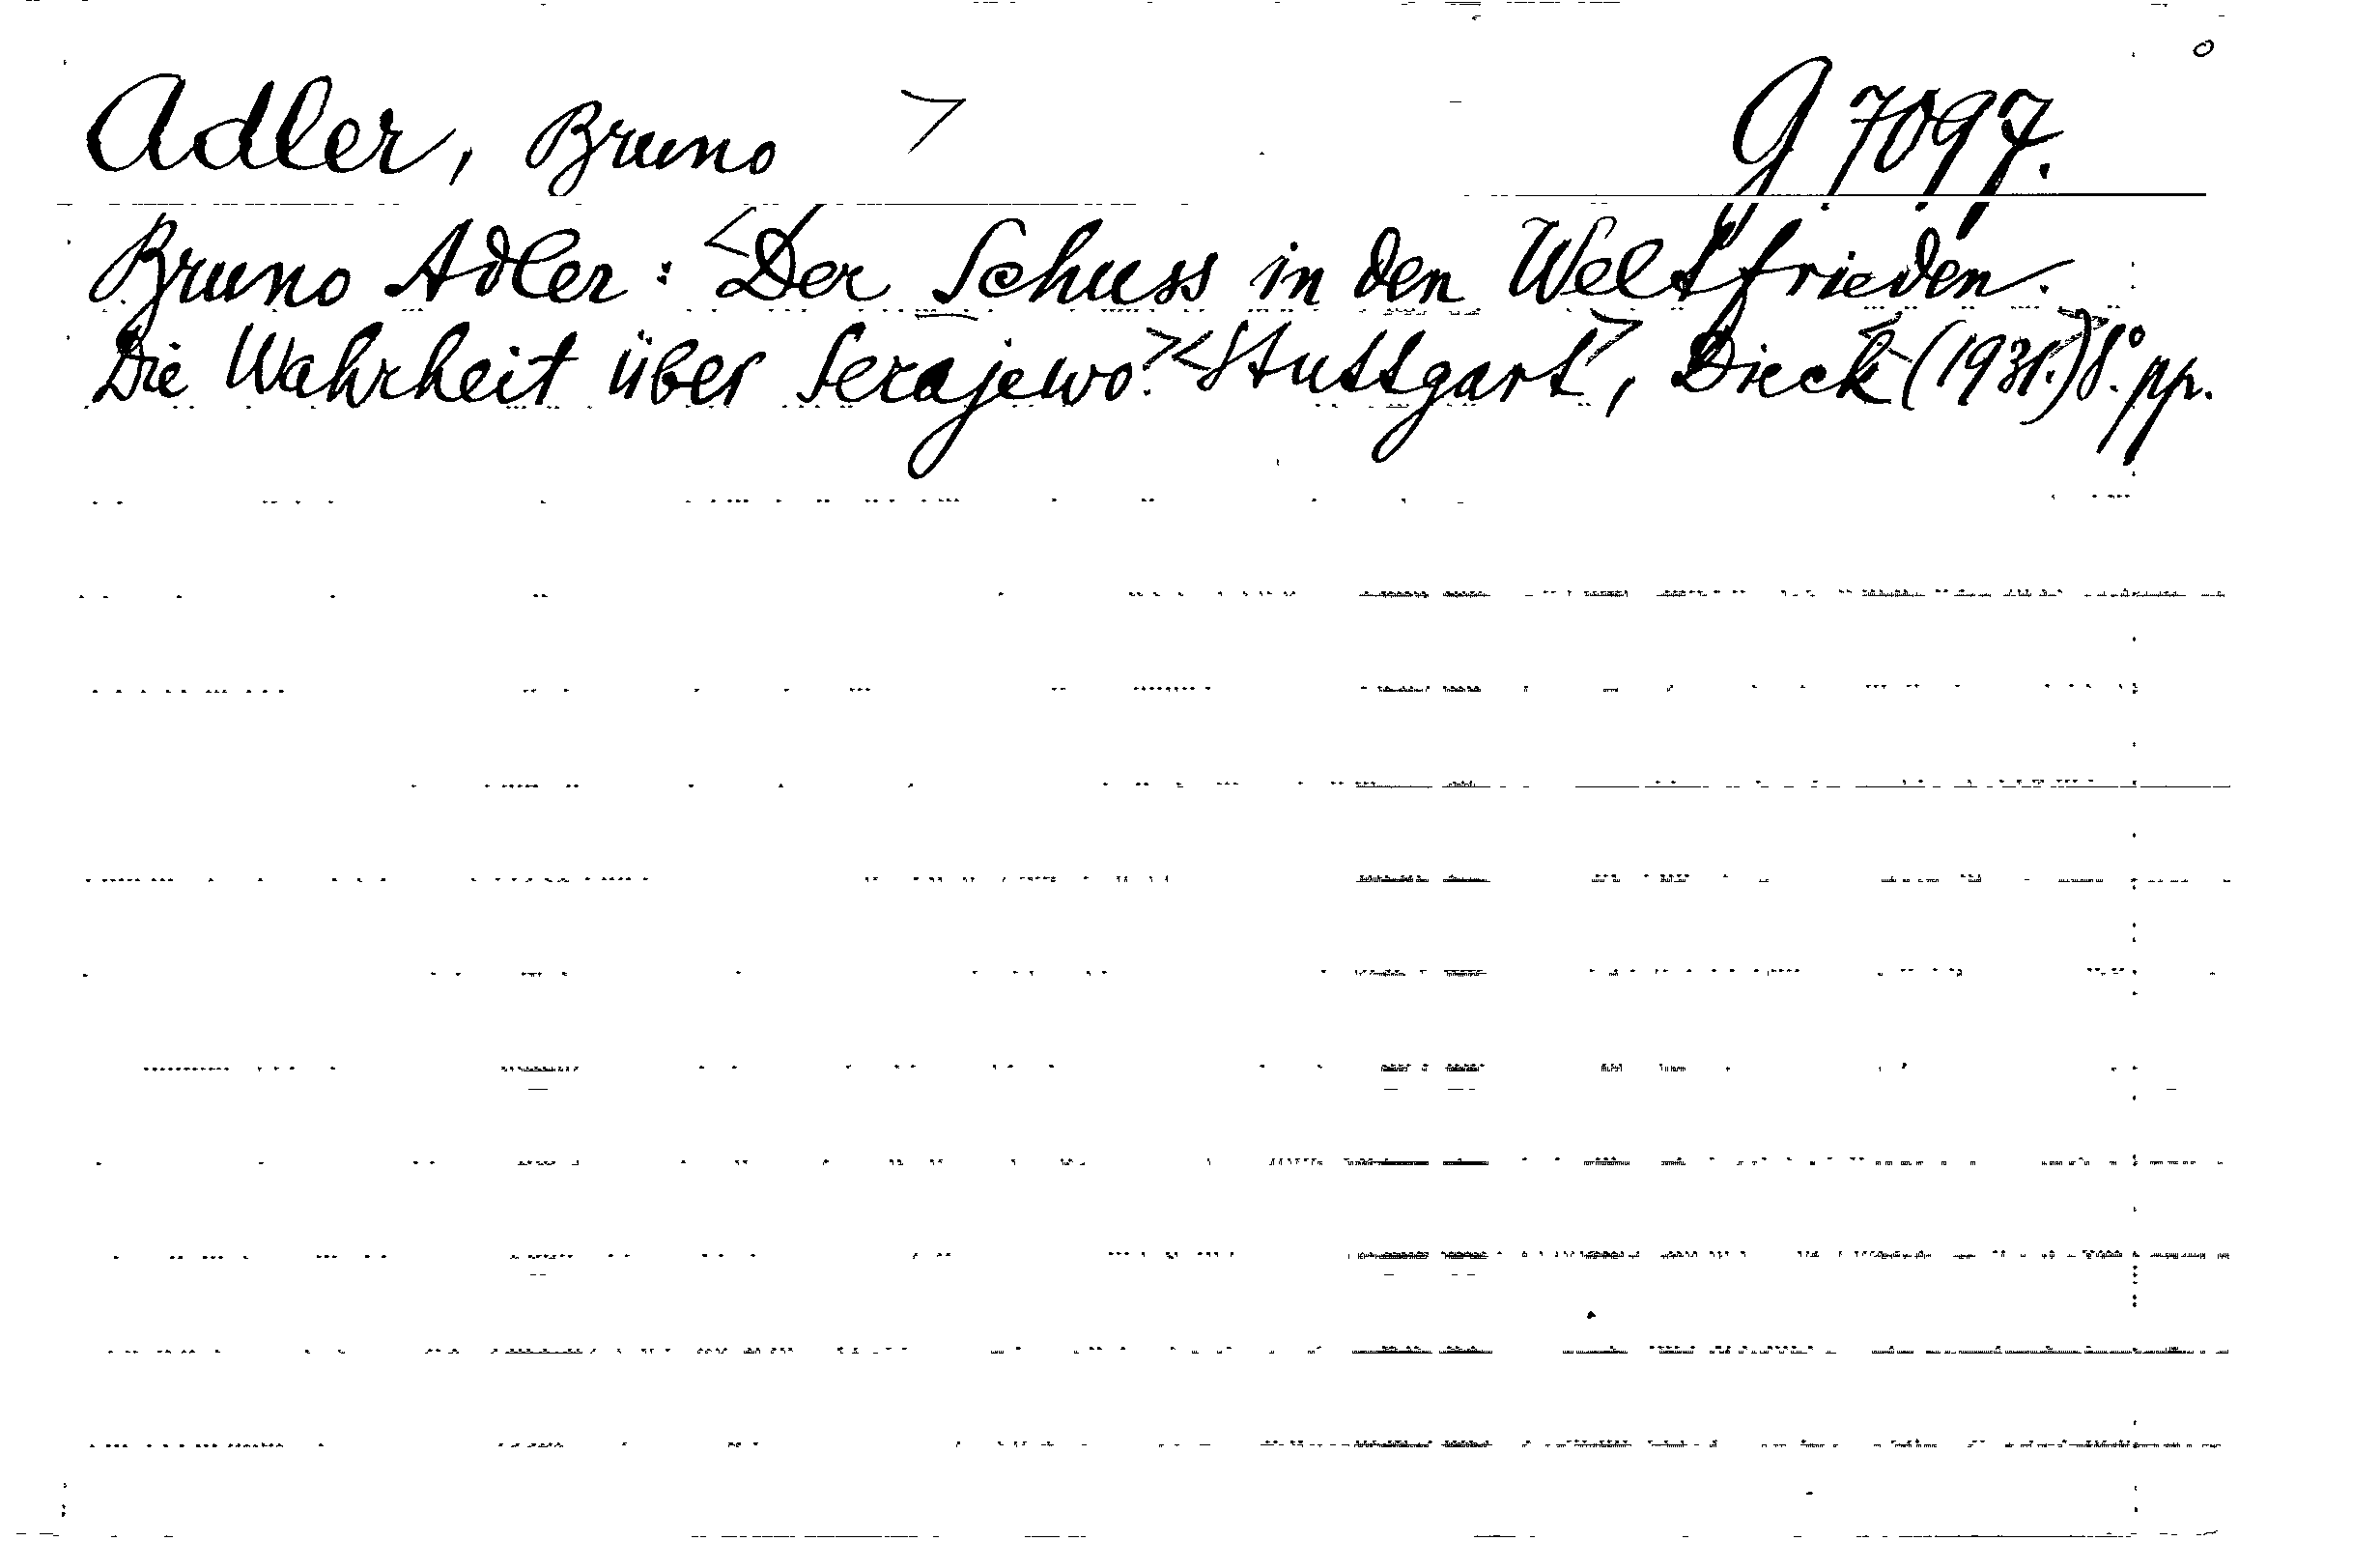 Adler, Bruno > G 7097.
Bruno Adler: <Der Schuss in den Weltfrieden.
Die Wahrheit über Serajewo.> <Stuttgart>, Dieck <(1931.)> 8° pp.